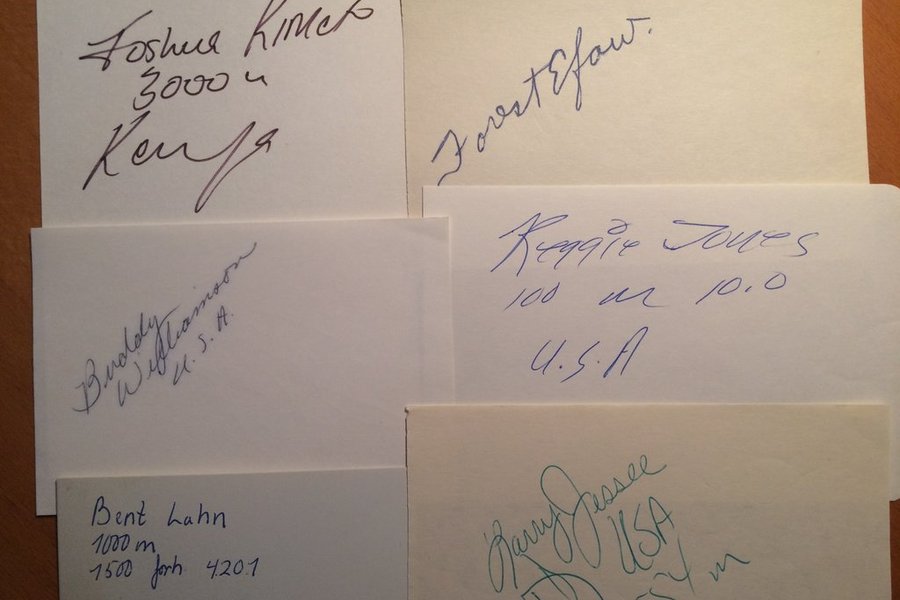 Joshua Kimeto
3000 m
Kenya
Forest Efaw.
Buddy
Williamson
U. S. A.
Reggie Jones
100 m 10.0
U.S.A
Bent Lahn
1000 m
1500 forh 4.20.1
Larry Jessee
USA
m